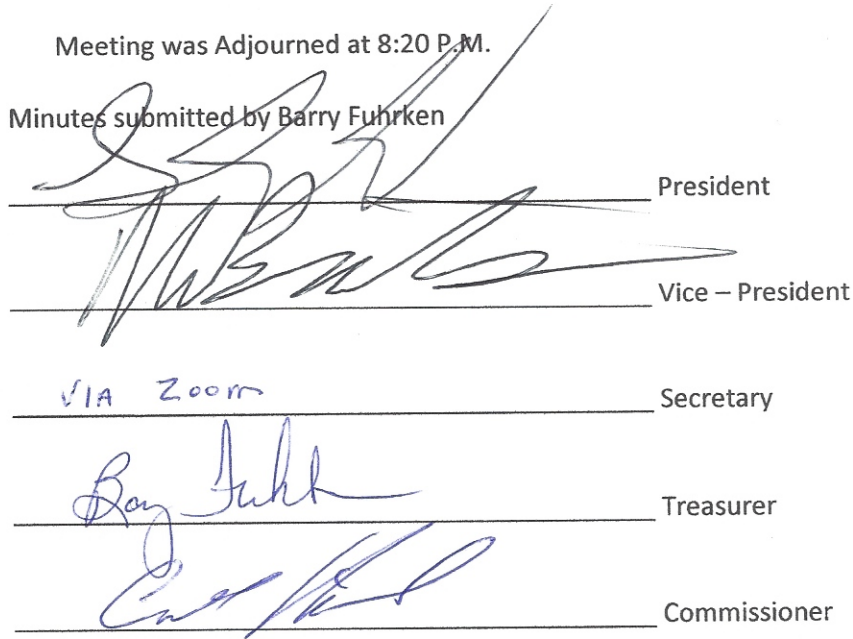 Meeting was Adjourned at 8:20 P.M.
Minutes submitted by Barry Fuhrken
President
Vice – President
VIA Zoom Secretary
Treasurer
Commissioner